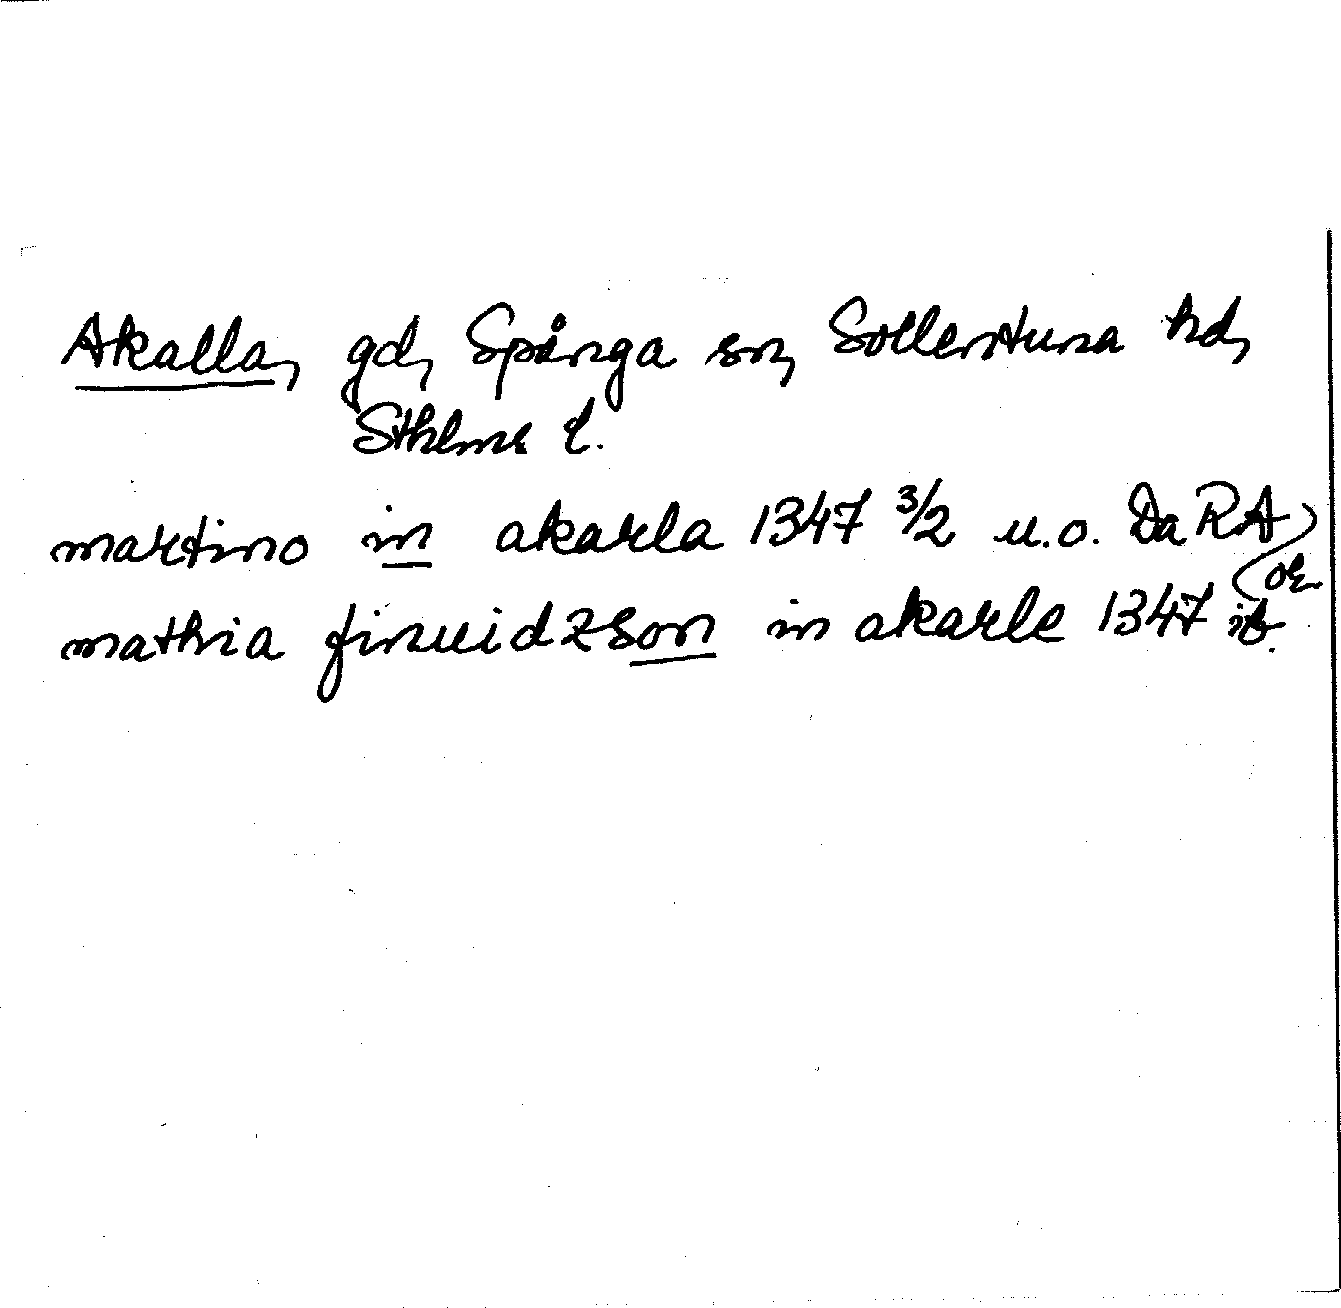 Akalla, gd, Spånga sn, Sollentuna hd,
Sthlms l.
martino in akarla 1347 3/2 u.o. Da RA
or
mathia finuidzson in akarle 1347 ib.